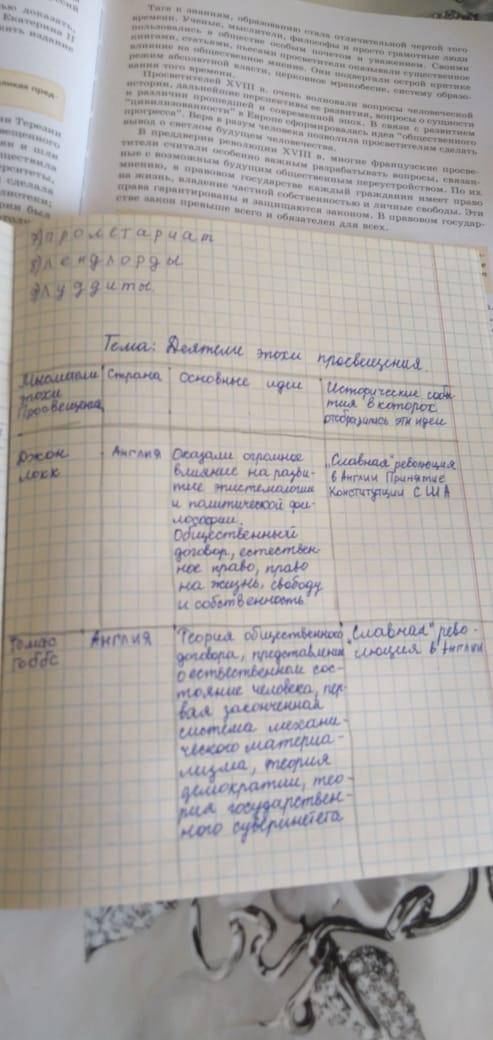 ью доказать,
Екатерина II
ить издание
ликая пред-
Терезии
вещенного
и шли
ществила
рситеты,
сделала
лиотеки;
рии был
Тяга к знаниям, образованию стала отличительной чертой того
времени. Ученые, мыслители, философы и просто грамотные люди
пользовались в обществе особым почетом и уважением. Своими
книгами, статьями, пьесами просветители оказывали существенное
влияние на общественное мнение. Они подвергали острой критике
режим абсолютной власти, церковное мракобесие, систему образо-
вания того времени.
Просветителей XVIII в. очень волновали вопросы человеческой
истории, дальнейшие перспективы ее развития, вопросы о сущности
и различии прошедшей и современной эпох. В связи с развитием
"цивилизованности" в Европе сформировалась идея "общественного
прогресса". Вера в разум человека позволила просветителям сделать
вывод о светлом будущем человечества.
В преддверии революции XVIII в. многие французские просве-
тители считали особенно важным разрабатывать вопросы, связан-
ные с возможным будущим общественным переустройством. По их
мнению, в правовом государстве каждый гражданин имеет право
на жизнь, владение частной собственностью и личные свободы. Эти
права гарантированы и защищаются законом. В правовом государ-
стве закон превыше всего и обязателен для всех.
пролетариат
лендлорды
луддиты
Тема: Деятели эпохи просвещения.
Мыслители
эпохи
Просвещения
Страна
Основные идеи
Исторические собы-
тия в которох
отобразились эти идеи
Джон
локк
Англия
Оказали огромное
влияние на разви-
тие эпистемологии
и политической фи-
лософии.
Общественный
договор, естествен-
ное право, право
на жизнь, свободу
и собственность
„Славная" революция
в Англии Принятие
Конституции США
Томас
Гоббс
Англия
Теория общественного
договора, представления
о естественном сос-
тояние человека, пер-
вая законченная
система механи-
ческого материа-
лизма, теория
демократии, тео-
рия государствен-
ного суверинетета
„Славная" рево-
люция в Англии